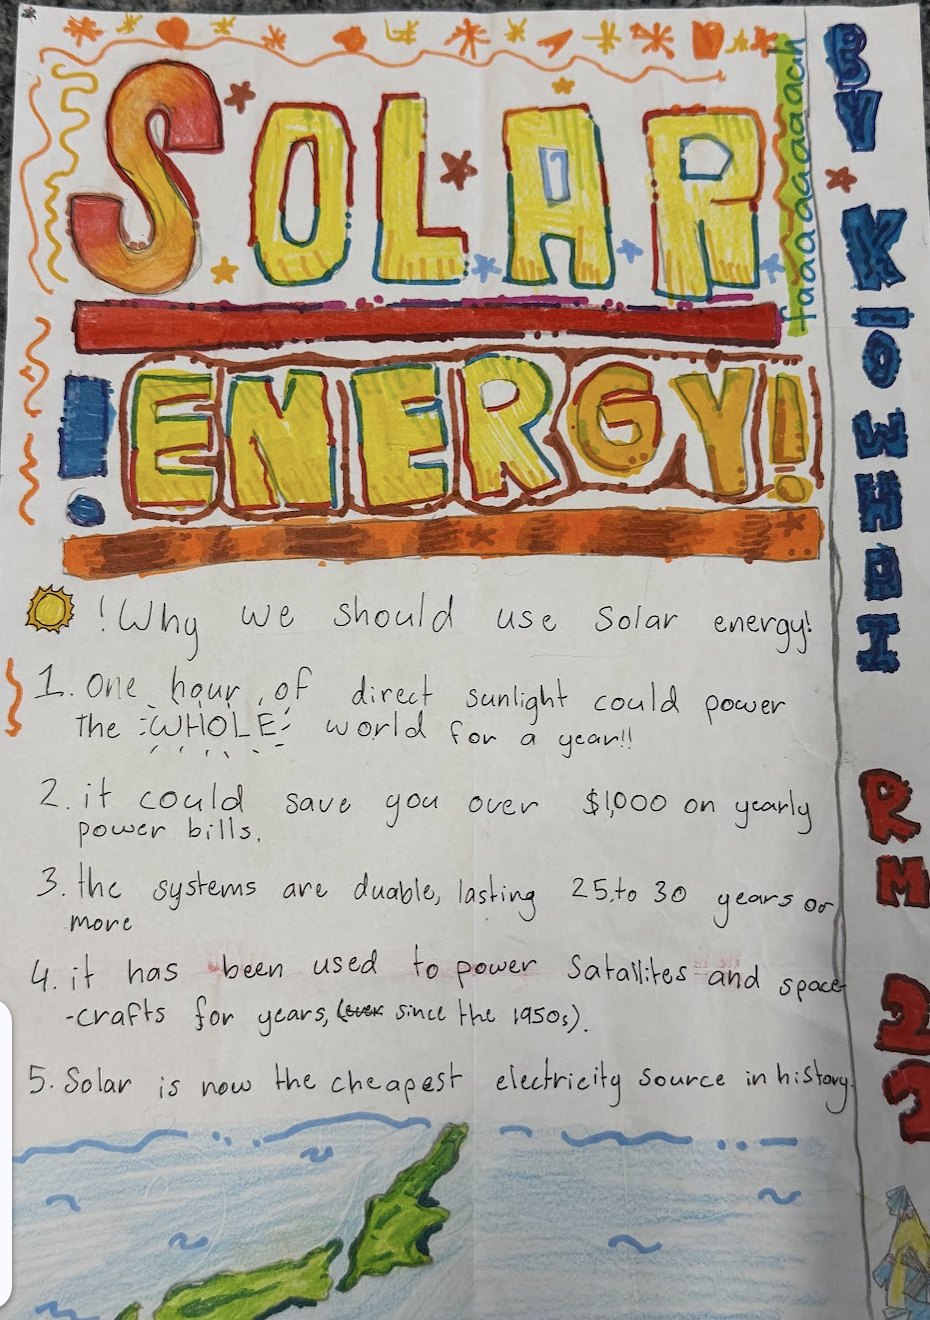 SOLAR
faaaaaaaaaach
!ENERGY!
!Why we should use Solar energy!
1. One hour of direct sunlight could power
the WHOLE world for a year!!
2. it could save you over $1,000 on yearly
power bills.
3. the systems are duable, lasting 25 to 30 years or
more
4. it has been used to power Satallites and space
-crafts for years, (ever since the 1950s).
5. Solar is now the cheapest electricity source in history.
BY KIOWHAI
RM 22